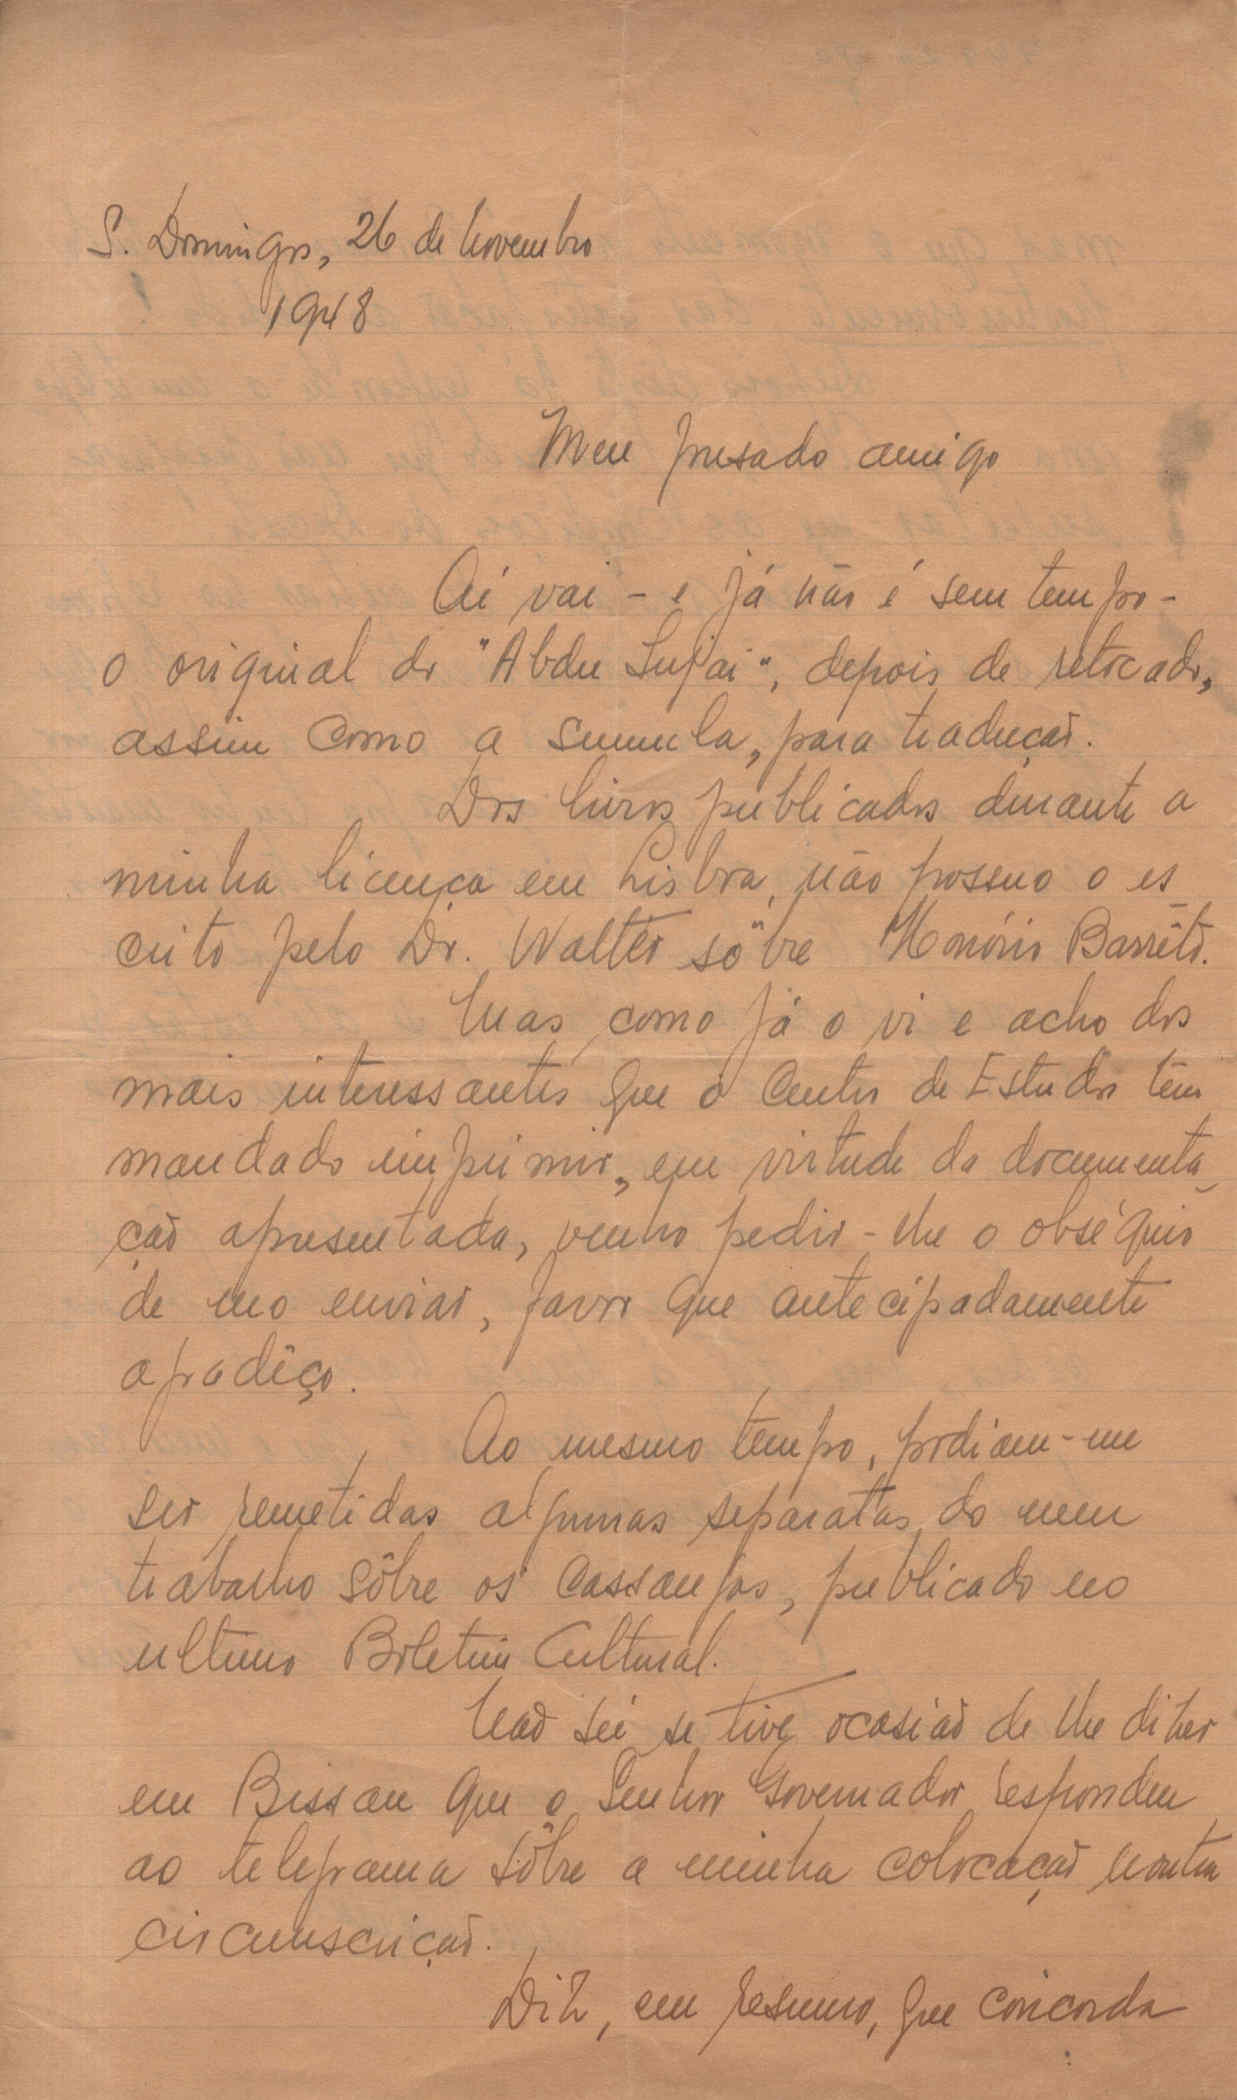 S. Domingos, 26 de novembro
1948
Meu presado amigo
Aí vai - e já não é sem tempo -
o original do "Abdu Injai", depois de retocado,
assim como a sumula, para tradução.
Dos livros publicados durante a
minha licença em Lisboa, não possuo o es
crito pelo Dr. Walter sôbre Honório Barrêto.
Mas como já o vi e acho dos
mais interessantes que o Centro de Estudos tem
mandado imprimir, em virtude da documenta
ção apresentada, venho pedir-lhe o obséquio
de mo enviar, favor que antecipadamente
agradêço.
Ao mesmo tempo, podiam-me
ser remetidas algumas separatas do meu
trabalho sôbre os Cassangas, publicado no
ultimo Boletim Cultural.
Não sei se tive ocasião de lhe dizer
em Bissau que o Senhor Governador respondeu
ao telegrama sôbre a minha colocação noutra
circunscrição.
Diz, em resumo, que concorda